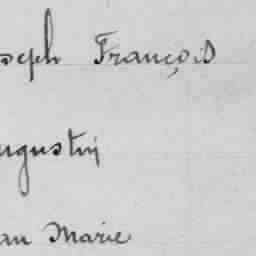 oseph François
ugustin
an Marie